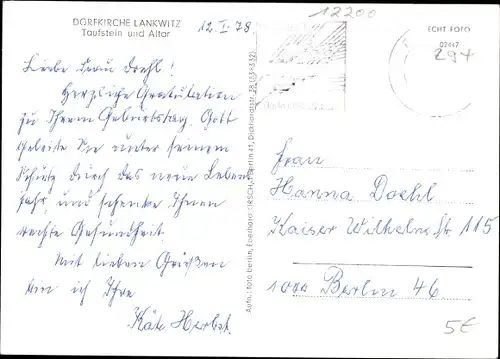 DORFKIRCHE LANKWITZ
Taufstein und Altar
12. I. 78.
12200
ECHT-FOTO
02447
297
Liebe Frau Doehl!
Herzliche Gratulation
zu Ihrem Geburtstag. Gott
geleite Sie unter seinem
Schutz durch das neue Lebens
jahr, und schenke Ihnen
rechte Gesundheit.
Mit lieben Grüßen
bin ich Ihre
Käte Herbst.
Aufn.: foto Berlin, Eberhard KIRSCH, 1 Berlin 41,
Frau
Hanna Doehl
Kaiser Wilhelm Str. 115
1000 Berlin 46.
5€